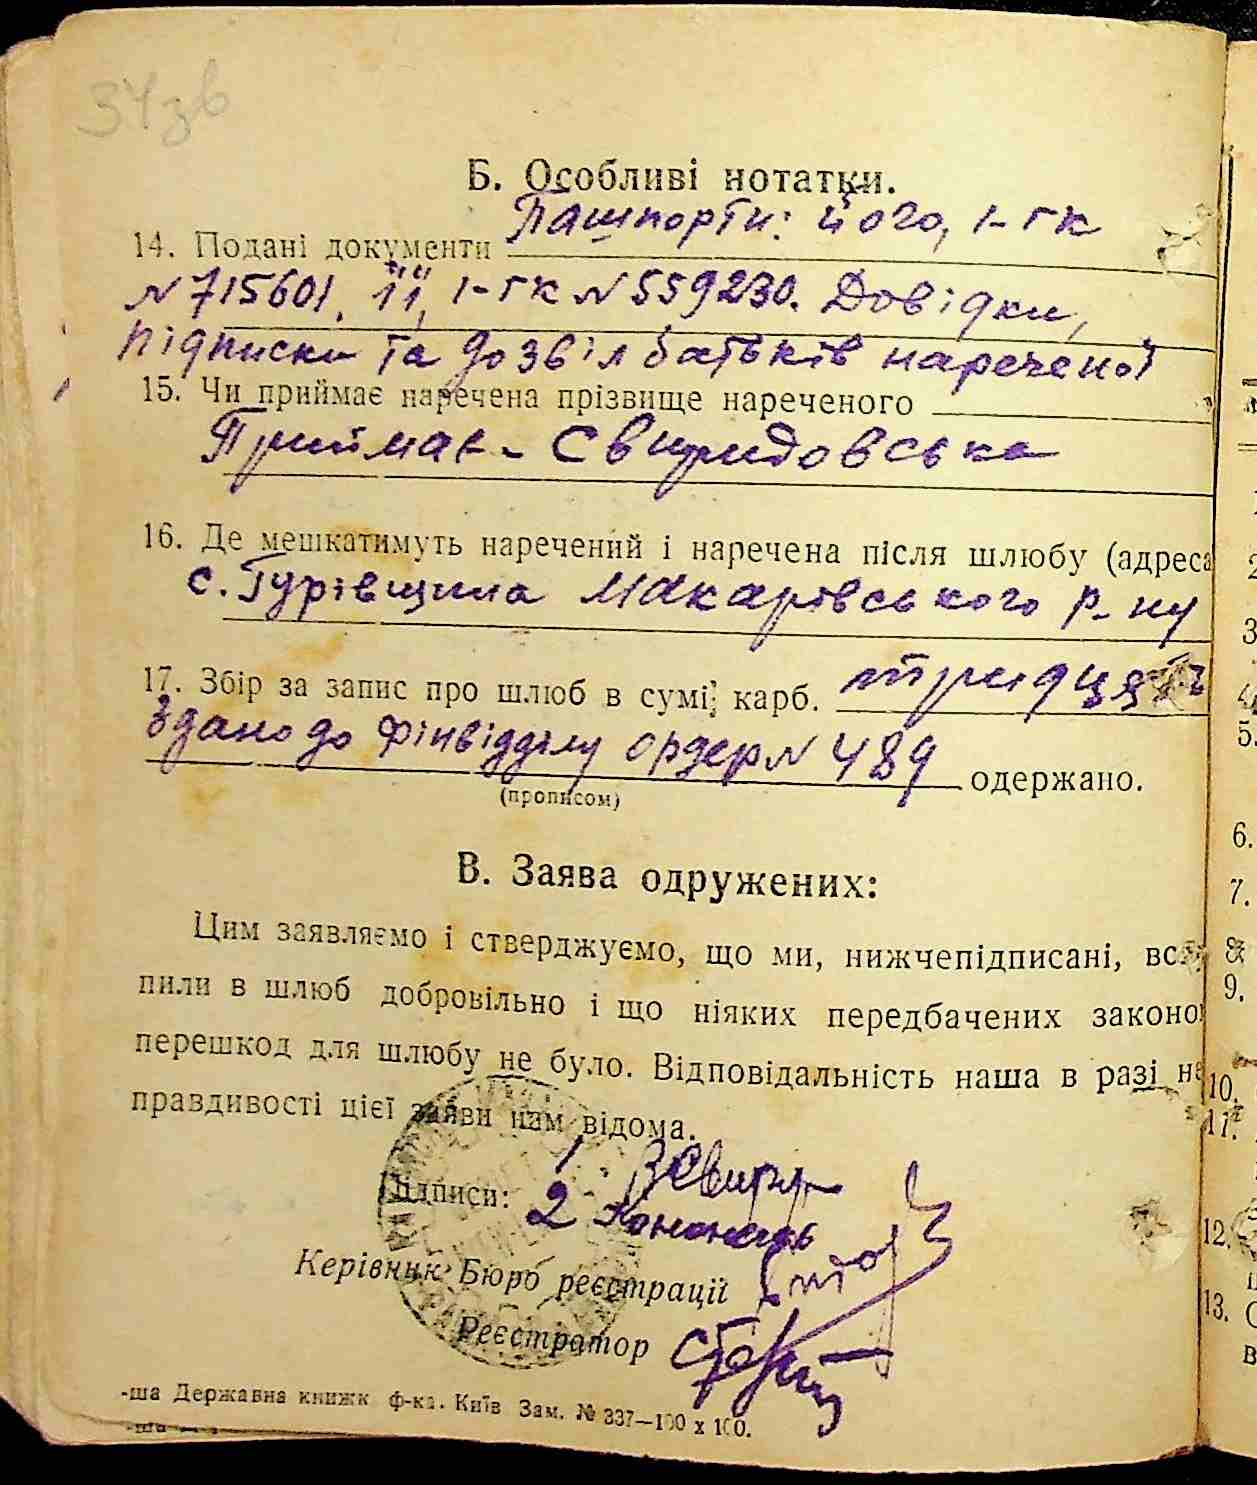 34зв
Б. Особливі нотатки.
14. Подані документи Пашпорти: його, 1-ГК
№715601. її, 1-ГК №559230. Довідки,
підписки та дозвіл батьків нареченої
15. Чи приймає наречена прізвище нареченого
Приймає - Свиридовська
16. Де мешкатимуть наречений і наречена після шлюбу (адреса
с. Гурівщина Макарівського р-ну
17. Збір за запис про шлюб в сумі; карб. тридцять
здано до фінвідділу ордер № 489 одержано.
(прописом)
В. Заява одружених:
Цим заявляємо і стверджуємо, що ми, нижчепідписані, всту
пили в шлюб добровільно і що ніяких передбачених законо
перешкод для шлюбу не було. Відповідальність наша в разі не
правдивості цієї заяви нам відома.
Підписи: 1
2 Кононець
Керівник Бюро реєстрації
Реєстратор
-ша Державна книжк ф-ка. Київ Зам. № 337—100 x 100.
3
4
5.
6.
7.
8
9.
10.
11.
12.
13.